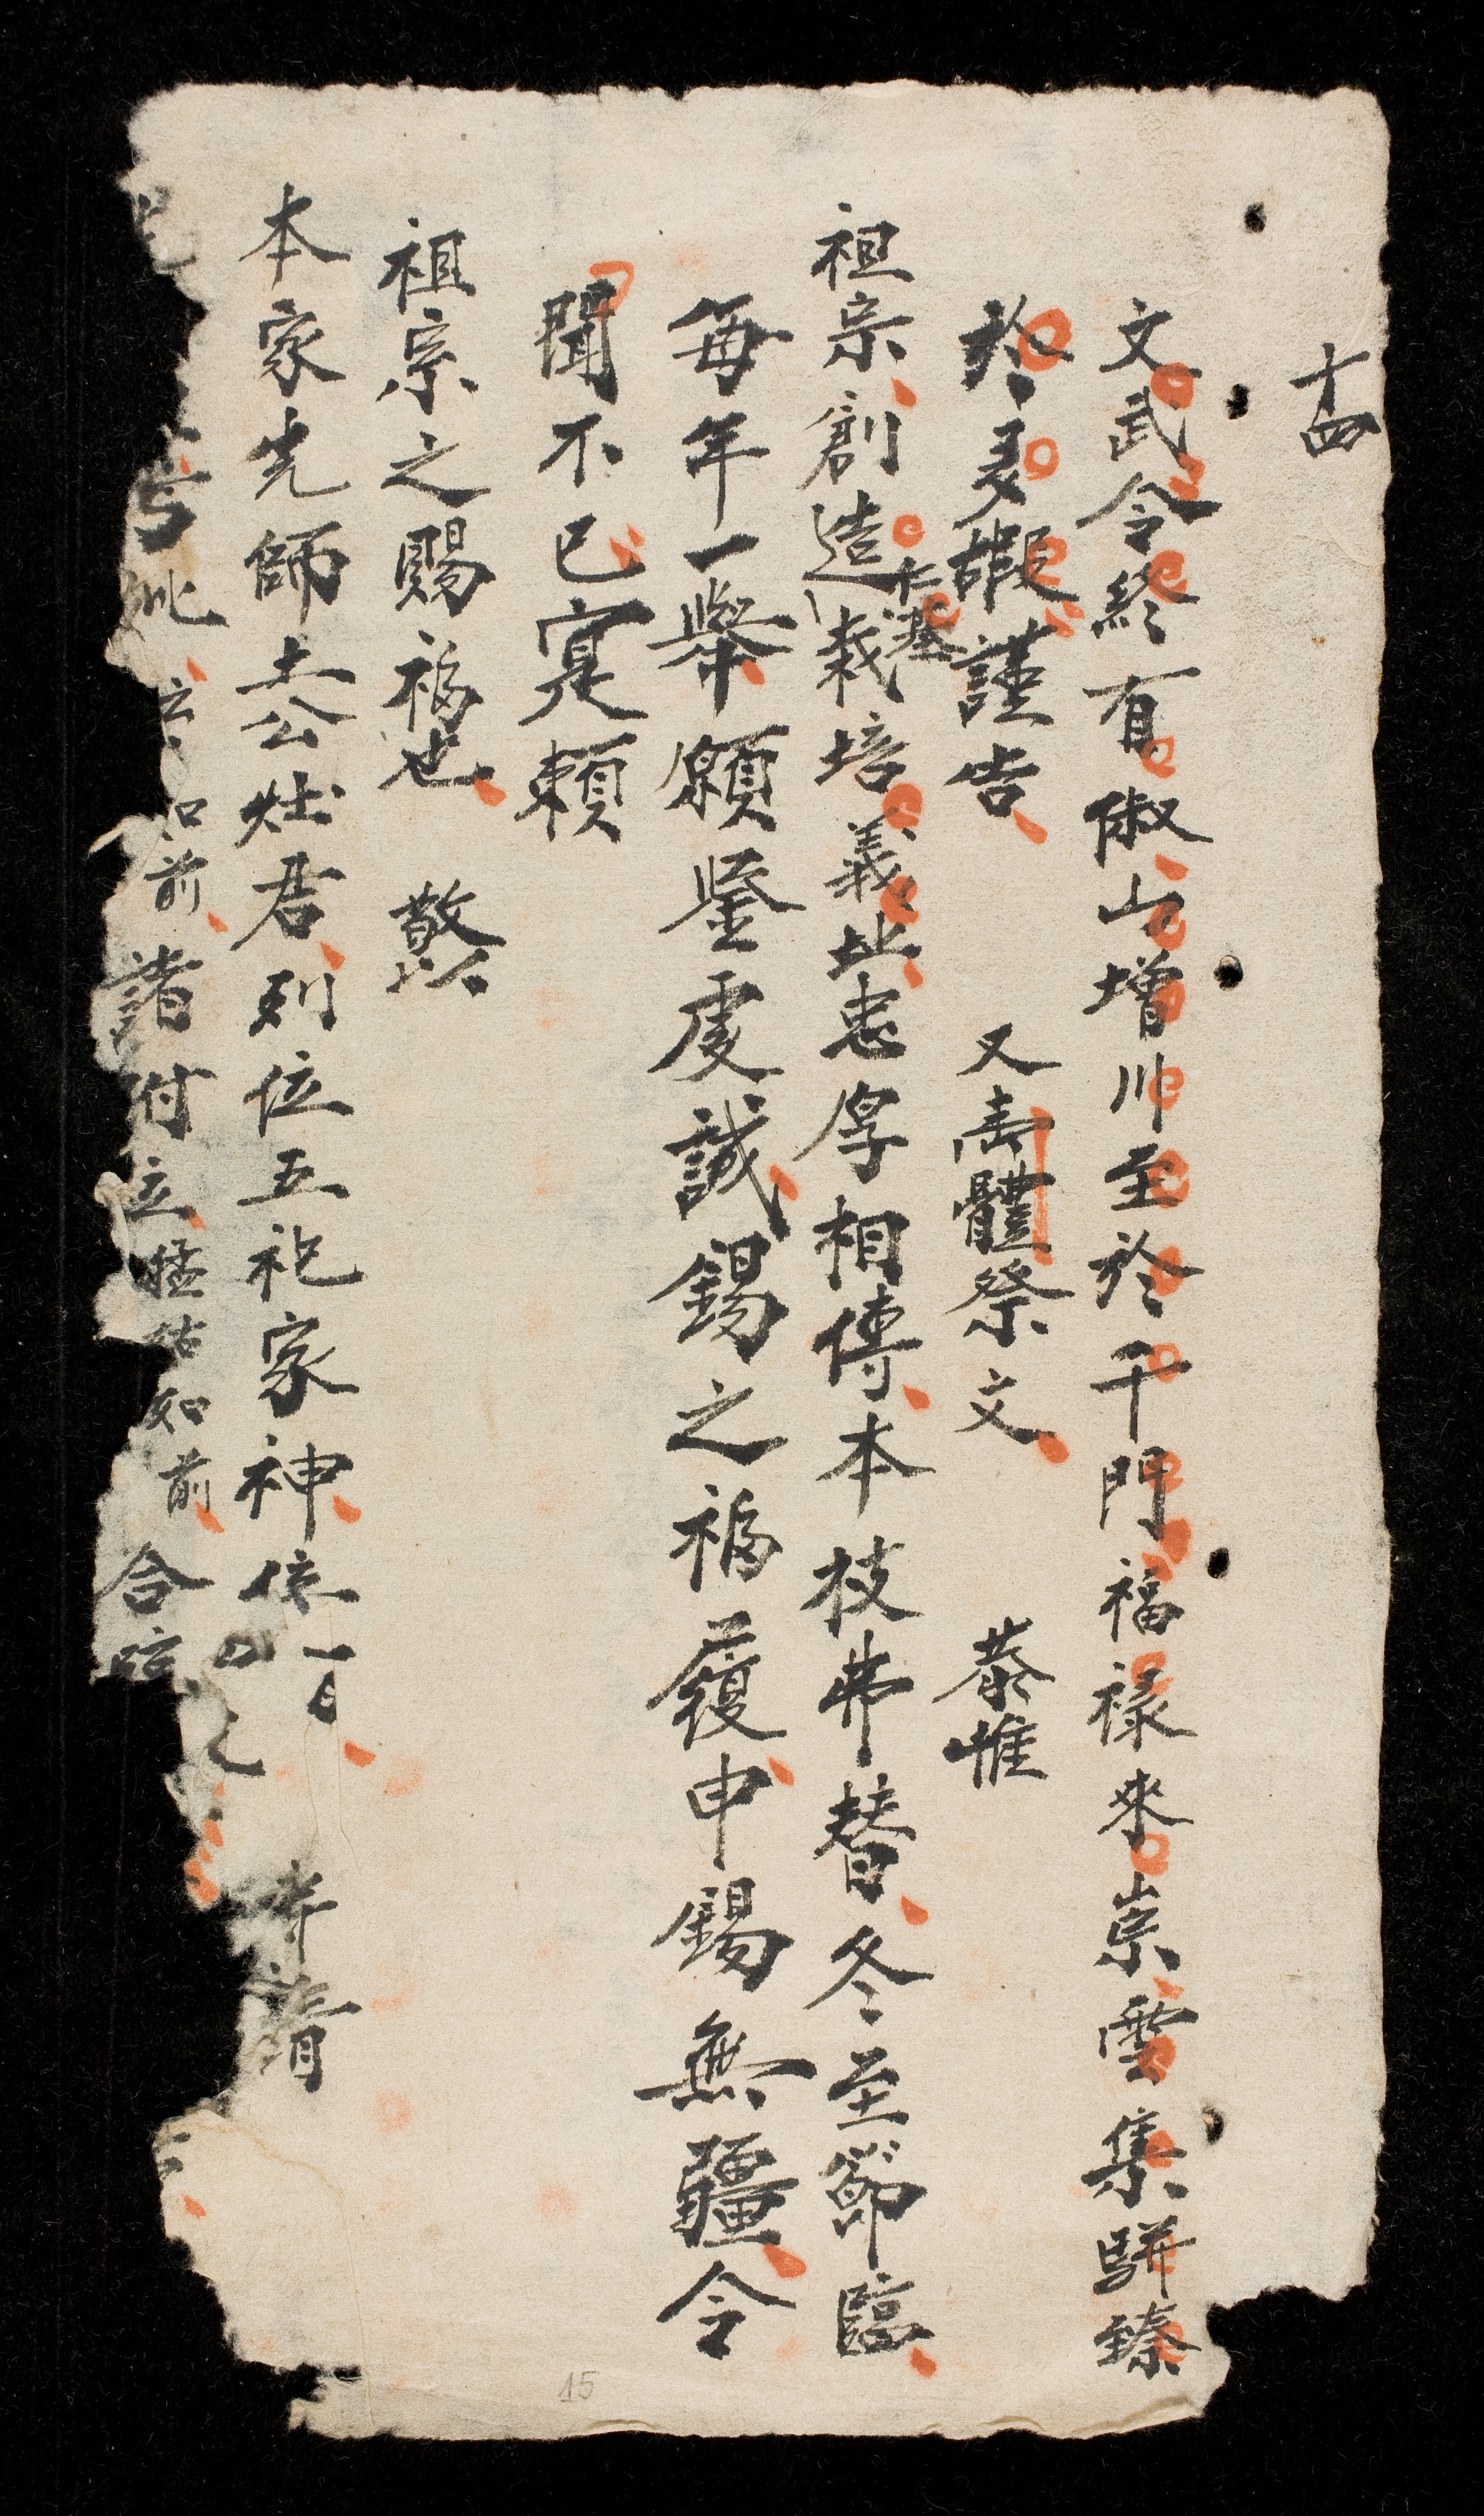 十四
文武令終有俶山增川至於千門福祿來崇雲集駢臻
於多嘏謹告 又壽體祭文 恭惟
祖宗創造仁基栽培義址忠厚相傳本枝弗替冬至節臨
每年一舉願鑒虔誠錫之福履申錫無疆令
聞不已寔賴
祖宗之賜福也 敬以
本家先師土公灶君列位五祀家神位前
諸附位 如前 合
15